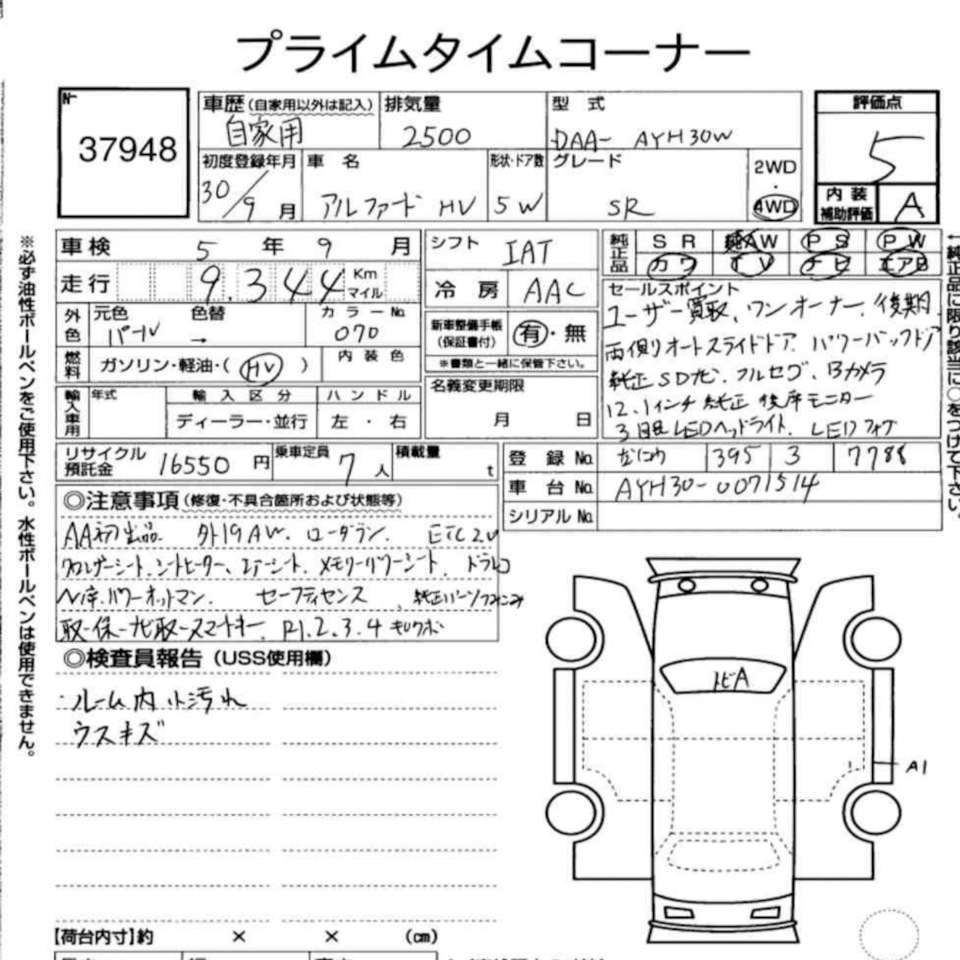 プライムタイムコーナー
№
37948
車歴(自家用以外は記入)
自家用
排気量
2500
型 式
DAA- AYH30W
評価点
5
初度登録年月
30/9月
車 名
アルファード HV
形状・ドア数
5W
グレード
SR
2WD
・
4WD
内 装
補助評価
A
車検 5年9月
シフト IAT
純正品
SR 純AW PS PW
カワ TV ナビ エアB
走行 9.344 Km マイル
冷 房 AAC
セールスポイント
ユーザー買取、ワンオーナー、後期
両側オートスライドドア パワーバックドア
純正SDナビ、フルセグ、Bカメラ
12.1インチ純正後席モニター
3眼LEDヘッドライト、LEDフォグ
外色
元色 色替
パール →
カラーNo.
070
新車整備手帳
(保証書付)
有・無
※書類と一緒に保管下さい。
燃料
ガソリン・軽油・( HV )
内 装 色
名義変更期限
月 日
輸入車用
年式
輸 入 区 分
ディーラー・並行
ハ ン ド ル
左 ・ 右
リサイクル
預託金
16550円
乗車定員
7人
積載量
t
登 録 No. なにわ 395 3 7788
車 台 No. AYH30-0071514
シリアルNo.
◎注意事項(修復・不具合箇所および状態等)
AA初出品 外19AW. ローダウン. ETC2.0
クロレザーシート、シートヒーター、エアーシート、メモリーパワーシート、ドラレコ
N席パワーオットマン. セーフティセンス、純正パーツつみこみ
取-保-ナビ取-スマートキー、R1.2.3.4キロクボ
◎検査員報告(USS使用欄)
・ルーム内小汚れ
ウスキズ
トビA
A1
【荷台内寸】約 × × (㎝)
※必ず油性ボールペンをご使用下さい。水性ボールペンは使用できません。
↑純正品に限り該当に○をつけて下さい。